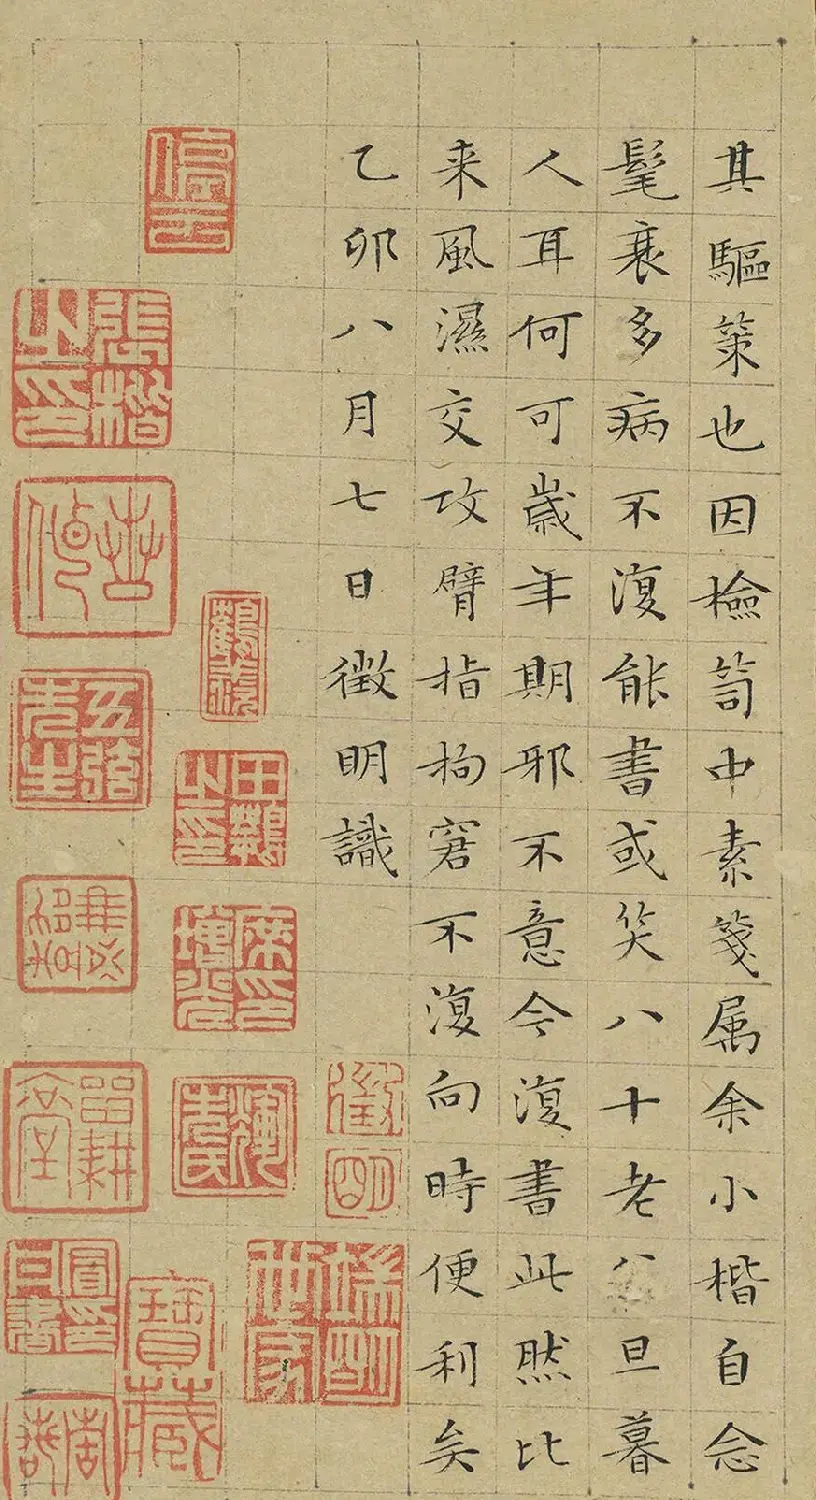 其驅策也因檢笥中素箋属余小楷自念
髦衰多病不復能書或笑八十老公旦暮
人耳何可歲年期邪不意今復書此然比
来風濕交攻臂指拘窘不復向時便利矣
乙卯八月七日徵明識
徵明
停雲
寶藏